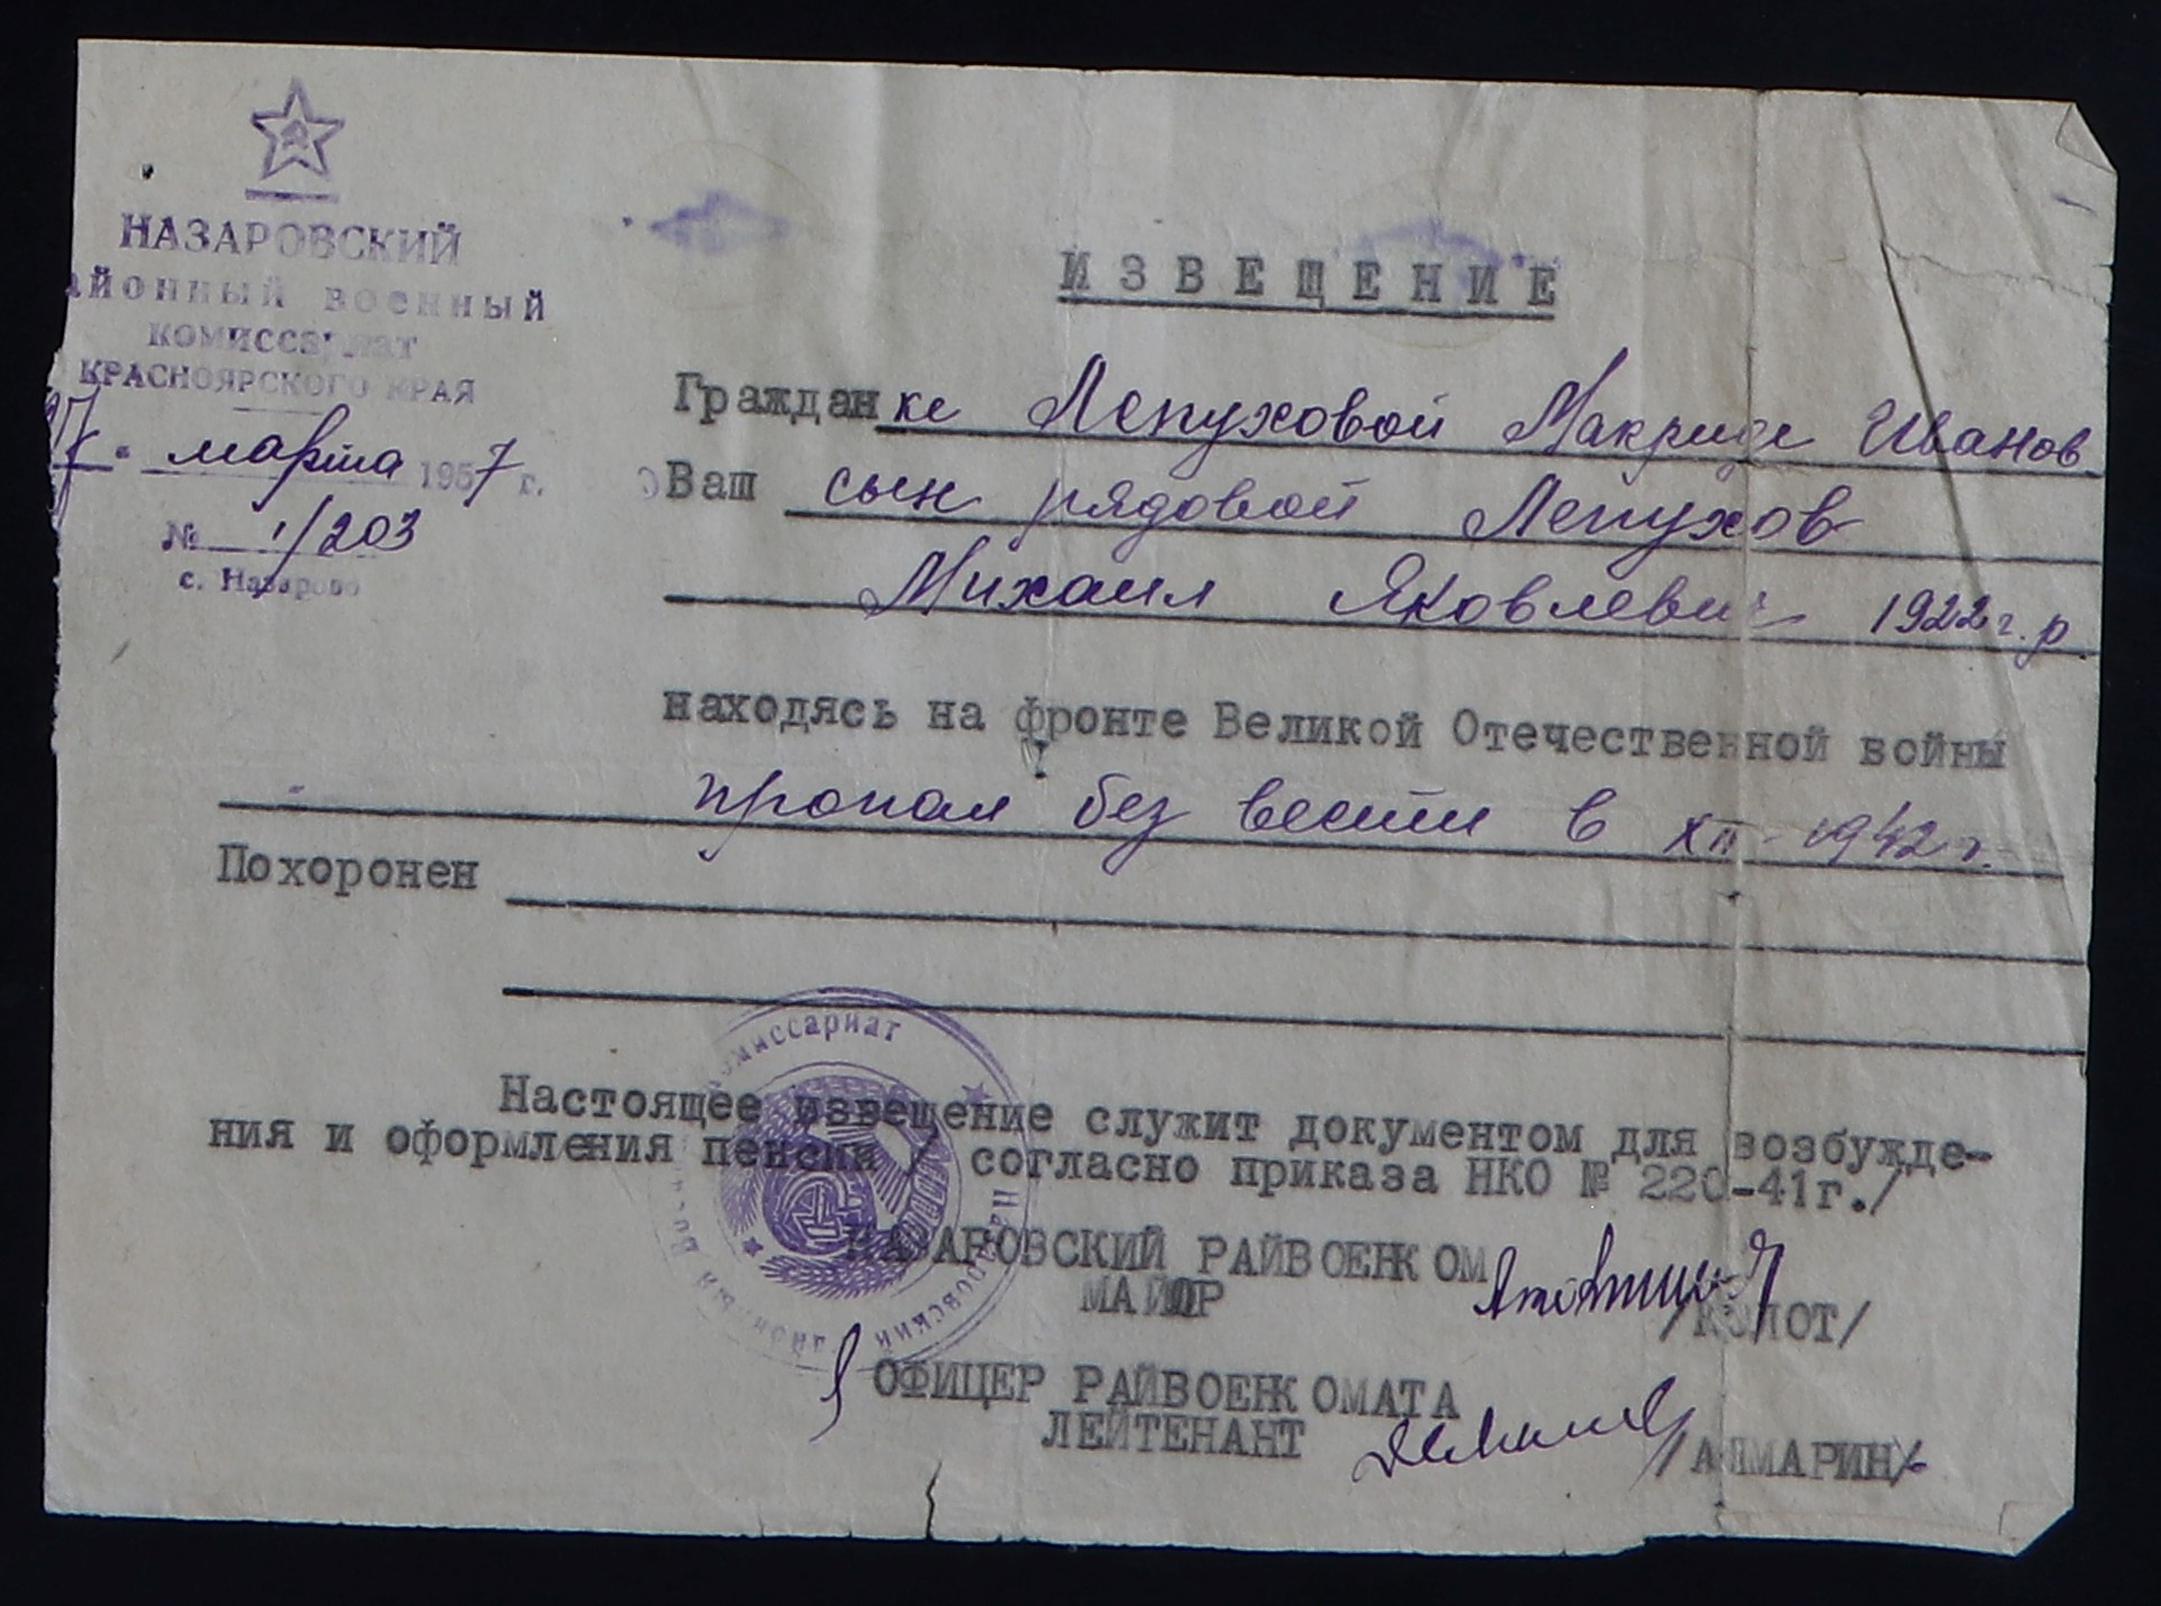 НАЗАРОВСКИЙ
айонный военный
комиссариат
КРАСНОЯРСКОГО КРАЯ
марта 1957 г.
№ 1/203
с. Назарово
ИЗВЕЩЕНИЕ
Гражданке Лепуховой Макриде Иванов
Ваш сын рядовой Лепухов
Михаил Яковлевич 1922 г. р.
находясь на фронте Великой Отечественной войны
пропал без вести в XII - 1942 г.
Похоронен
Настоящее извещение служит документом для возбужде-
ния и оформления пенсии / согласно приказа НКО № 220-41г./
НАЗАРОВСКИЙ РАЙВОЕНКОМ
МАЙОР
/КОЛОТ/
ОФИЦЕР РАЙВОЕНКОМАТА
ЛЕЙТЕНАНТ
комиссариат
Назаровский